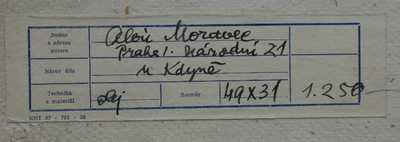 Jméno
a adresa
autora
Alois Moravec
Praha 1. Národní 21
Název díla
u Kdyně
Technika
a materiál
olej
Rozměr
49x31
1.250